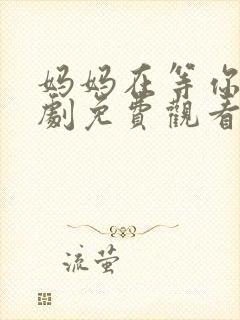 妈妈在等你
劇免費觀看
流萤